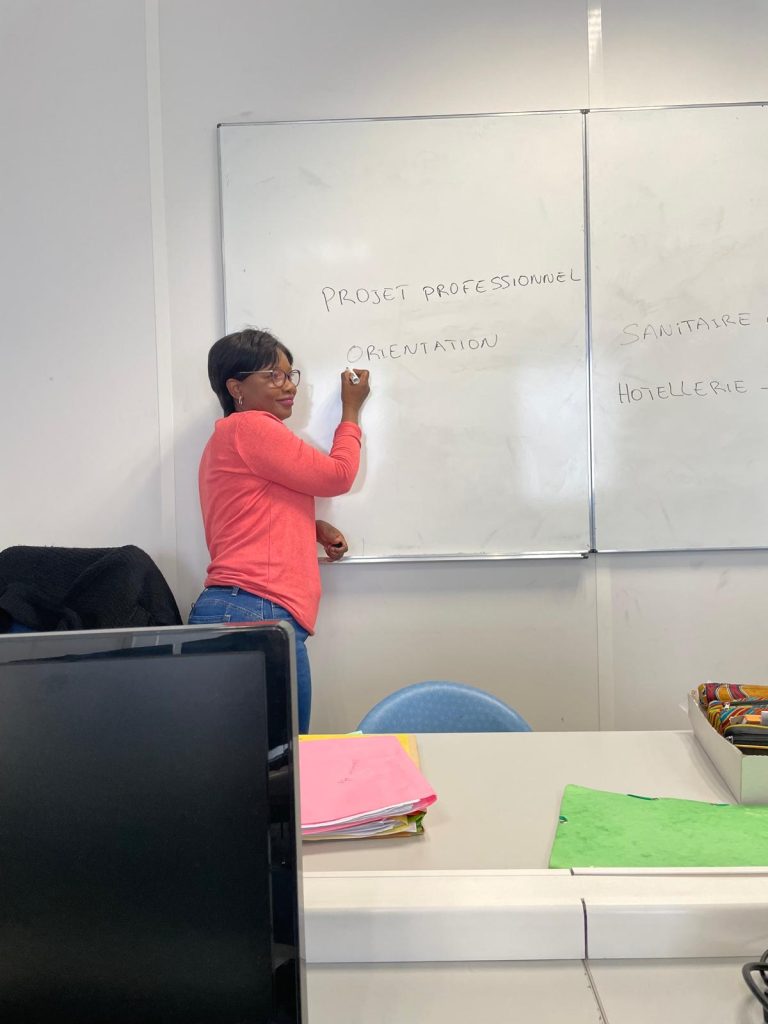 PROJET PROFESSIONNEL
ORIENTATION
SANITAIRE
HOTELLERIE -